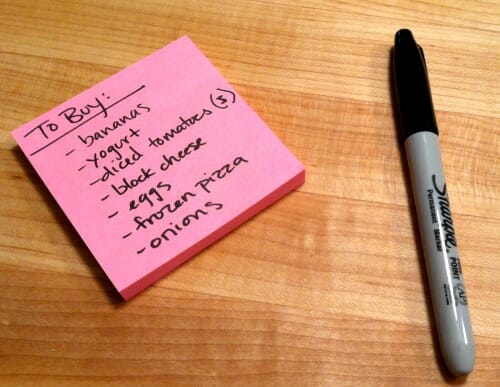 To Buy:
- bananas
- yogurt
- diced tomatoes (5)
- block cheese
- eggs
- frozen pizza
- onions
Sharpie
Permanent Marker
POINT